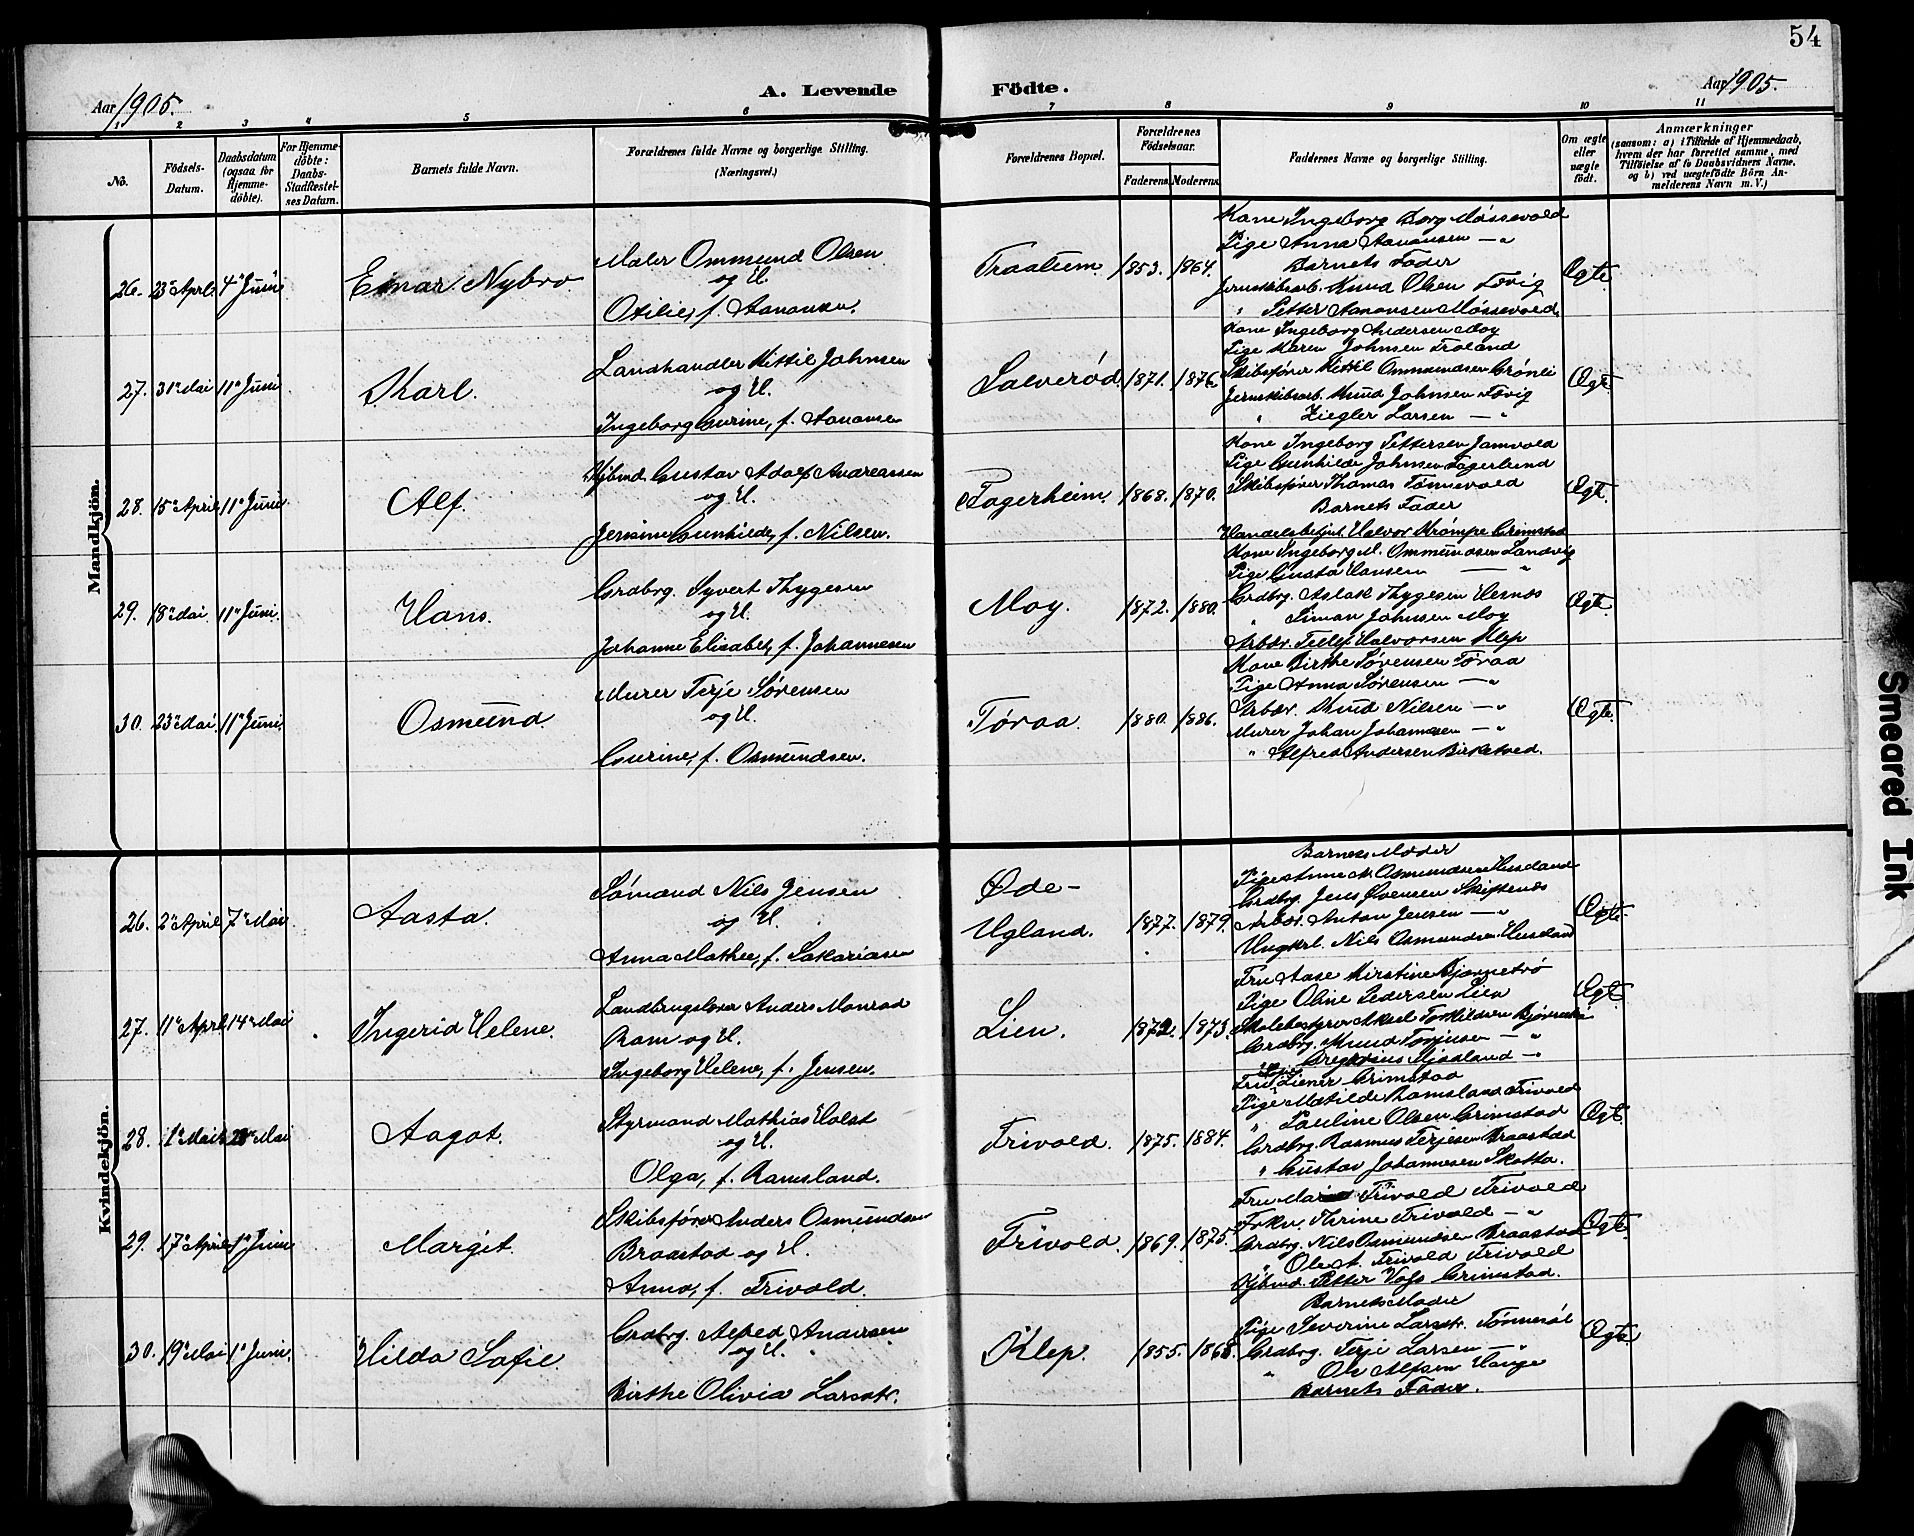 54
Aar 1905.
A. Levende
Födte.
Aar 1905.
1 2 3 4 5 6 7 8 9 10 11
No.
Födsels-Datum.
Daabsdatum (ogsaa for Hjemmedöbte).
For Hjemmedöbte: Daabs-Stadfæstelses Datum.
Barnets fulde Navn.
Forældrenes fulde Navne og borgerlige Stilling. (Næringsvei.)
Forældrenes Bopæl.
Forældrenes Födselsaar.
Faderens. Moderens.
Faddernes Navne og borgerlige Stilling.
Om ægte eller uægte födt.
Anmærkninger
(saasom: a) i Tilfælde af Hjemmedaab,
hvem der har forrettet samme, med
Tilföielse af to Daabsvidners Navne,
og b) ved uægtefödte Börn An-
melderens Navn m. V.)
Mandkjön.
26. 23de April 4de Juni Einar Nybro
Maler Ommund Olsen
og H.
Otilie, f. Aanonsen.
Traatum. 1853. 1864.
Kone Ingeborg Borg Møssevold
Pige Anna Aanonsen — "
Barnets Fader
Jernskibsarb. Knud Olsen Fevig
" Petter Aanonsen Møssevold
Ægte.
27. 31te Mai 11te Juni Karl.
Landhandler Kittil Johnsen
og H.
Ingeborg Gurine, f. Aanonsen
Salverød. 1871. 1876.
Kone Ingeborg Andersen Moy
Pige Karen Johnsen Froland
Skibsfører Kittil Ommundsen Grønli
Jernskibsarb. Knud Johnsen Fevig
" Ziegler Larsen — "
Ægte.
28. 15de April 11te Juni Alf.
Kjbmd. Gustav Adolf Andreassen
og H.
Jensine Gunhilde, f. Nilsen.
Fagerheim. 1868. 1870.
Kone Ingeborg Pettersen Jomvold
Pige Gunhilde Johnsen Fagerlund
Skibsfører Thomas Tønnevold
Barnets Fader
Handelsbetjent Halvor Krømpe Grimstad
Ægte.
29. 18de Mai 11te Juni. Hans.
Grdbrg. Syvert Thygesen
og H.
Johanne Elisabet, f. Johannesen
Moy. 1872. 1880.
Kone Ingeborg M. Ommundsen Landvig
Pige Gusta Hansen — "
Grdbrg. Aslak Thygesen Hernes
" Simon Johnsen Moy
Arbdr. Tellef Halvorsen Klep
Ægte.
30. 23de Mai 11te Juni. Osmund.
Murer Terje Sørensen
og H.
Gurine, f. Osmundsen.
Tøraa. 1880. 1886.
Kone Birthe Sørensen Tøraa
Pige Anna Sørensen — "
Arbdr. Knud Nilsen — "
Murer Johan Johannesen — "
" Alfred Andersen Birketved.
Ægte.
Kvindekjön.
26. 2den April 7de Mai Aasta.
Sømand Nils Jensen
og H.
Anna Mathea, f. Sakariasen
Øde-
Ugland. 1877. 1879.
Barnets Moder
Pige Anne M. Osmundsen Husland
Grdbrg. Jens Evensen Skiftenes
Arbdr. Anton Jensen — "
Ungkrl. Nils Osmundsen Husland
Ægte.
27. 11te April 14de Mai Ingerid Helene.
Landbrugslærer Anders Monrad
Ram og H.
Ingeborg Helene, f. Jensen.
Lien. 1872. 1873.
Fru Aase Kirstine Bjørnetrø
Pige Oline Pedersen Lien
Skolebestyrer Aksel Torkildsen
Grdbrg. Knud Terjesen — "
Gregorius Mjaaland — "
Ægte
28. 1ste Mai 28de Mai Aagot.
Styrmand Mathias Holst
og H.
Olga, f. Ramsland.
Frivold. 1875. 1884.
Fru Ziener Grimstad
Pige Matilde Ramsland Frivold
" Pauline Olsen Grimstad
Grdbrg. Rasmus Terjesen Braastad
" Gustav Johannesen Skotta.
Ægte
29. 17de April 1ste Juni Margit.
Skibsfører Anders Osmundsen
Braastad og H.
Anna, f. Frivold.
Frivold. 1869. 1875.
Fru Frivold Frivold
Frkn. Thrine Frivold — "
Grdbrg. Nils Osmundsen Braastad
" Ole A. Frivold Frivold
Kjbmd. Petter Vogs Grimstad.
Ægte.
30. 19de Mai 1ste Juni. Hilda Sofie.
Grdbrg. Alfred Andersen
og H.
Birthe Olivia Larsdtr.
Klep. 1855. 1868.
Barnets Moder
Pige Severine Larsdtr. Tønnesøl
Grdbrg. Terje Larsen — "
" Ole Alfsen Hauge
Barnets Fader.
Ægte.
Smeared Ink